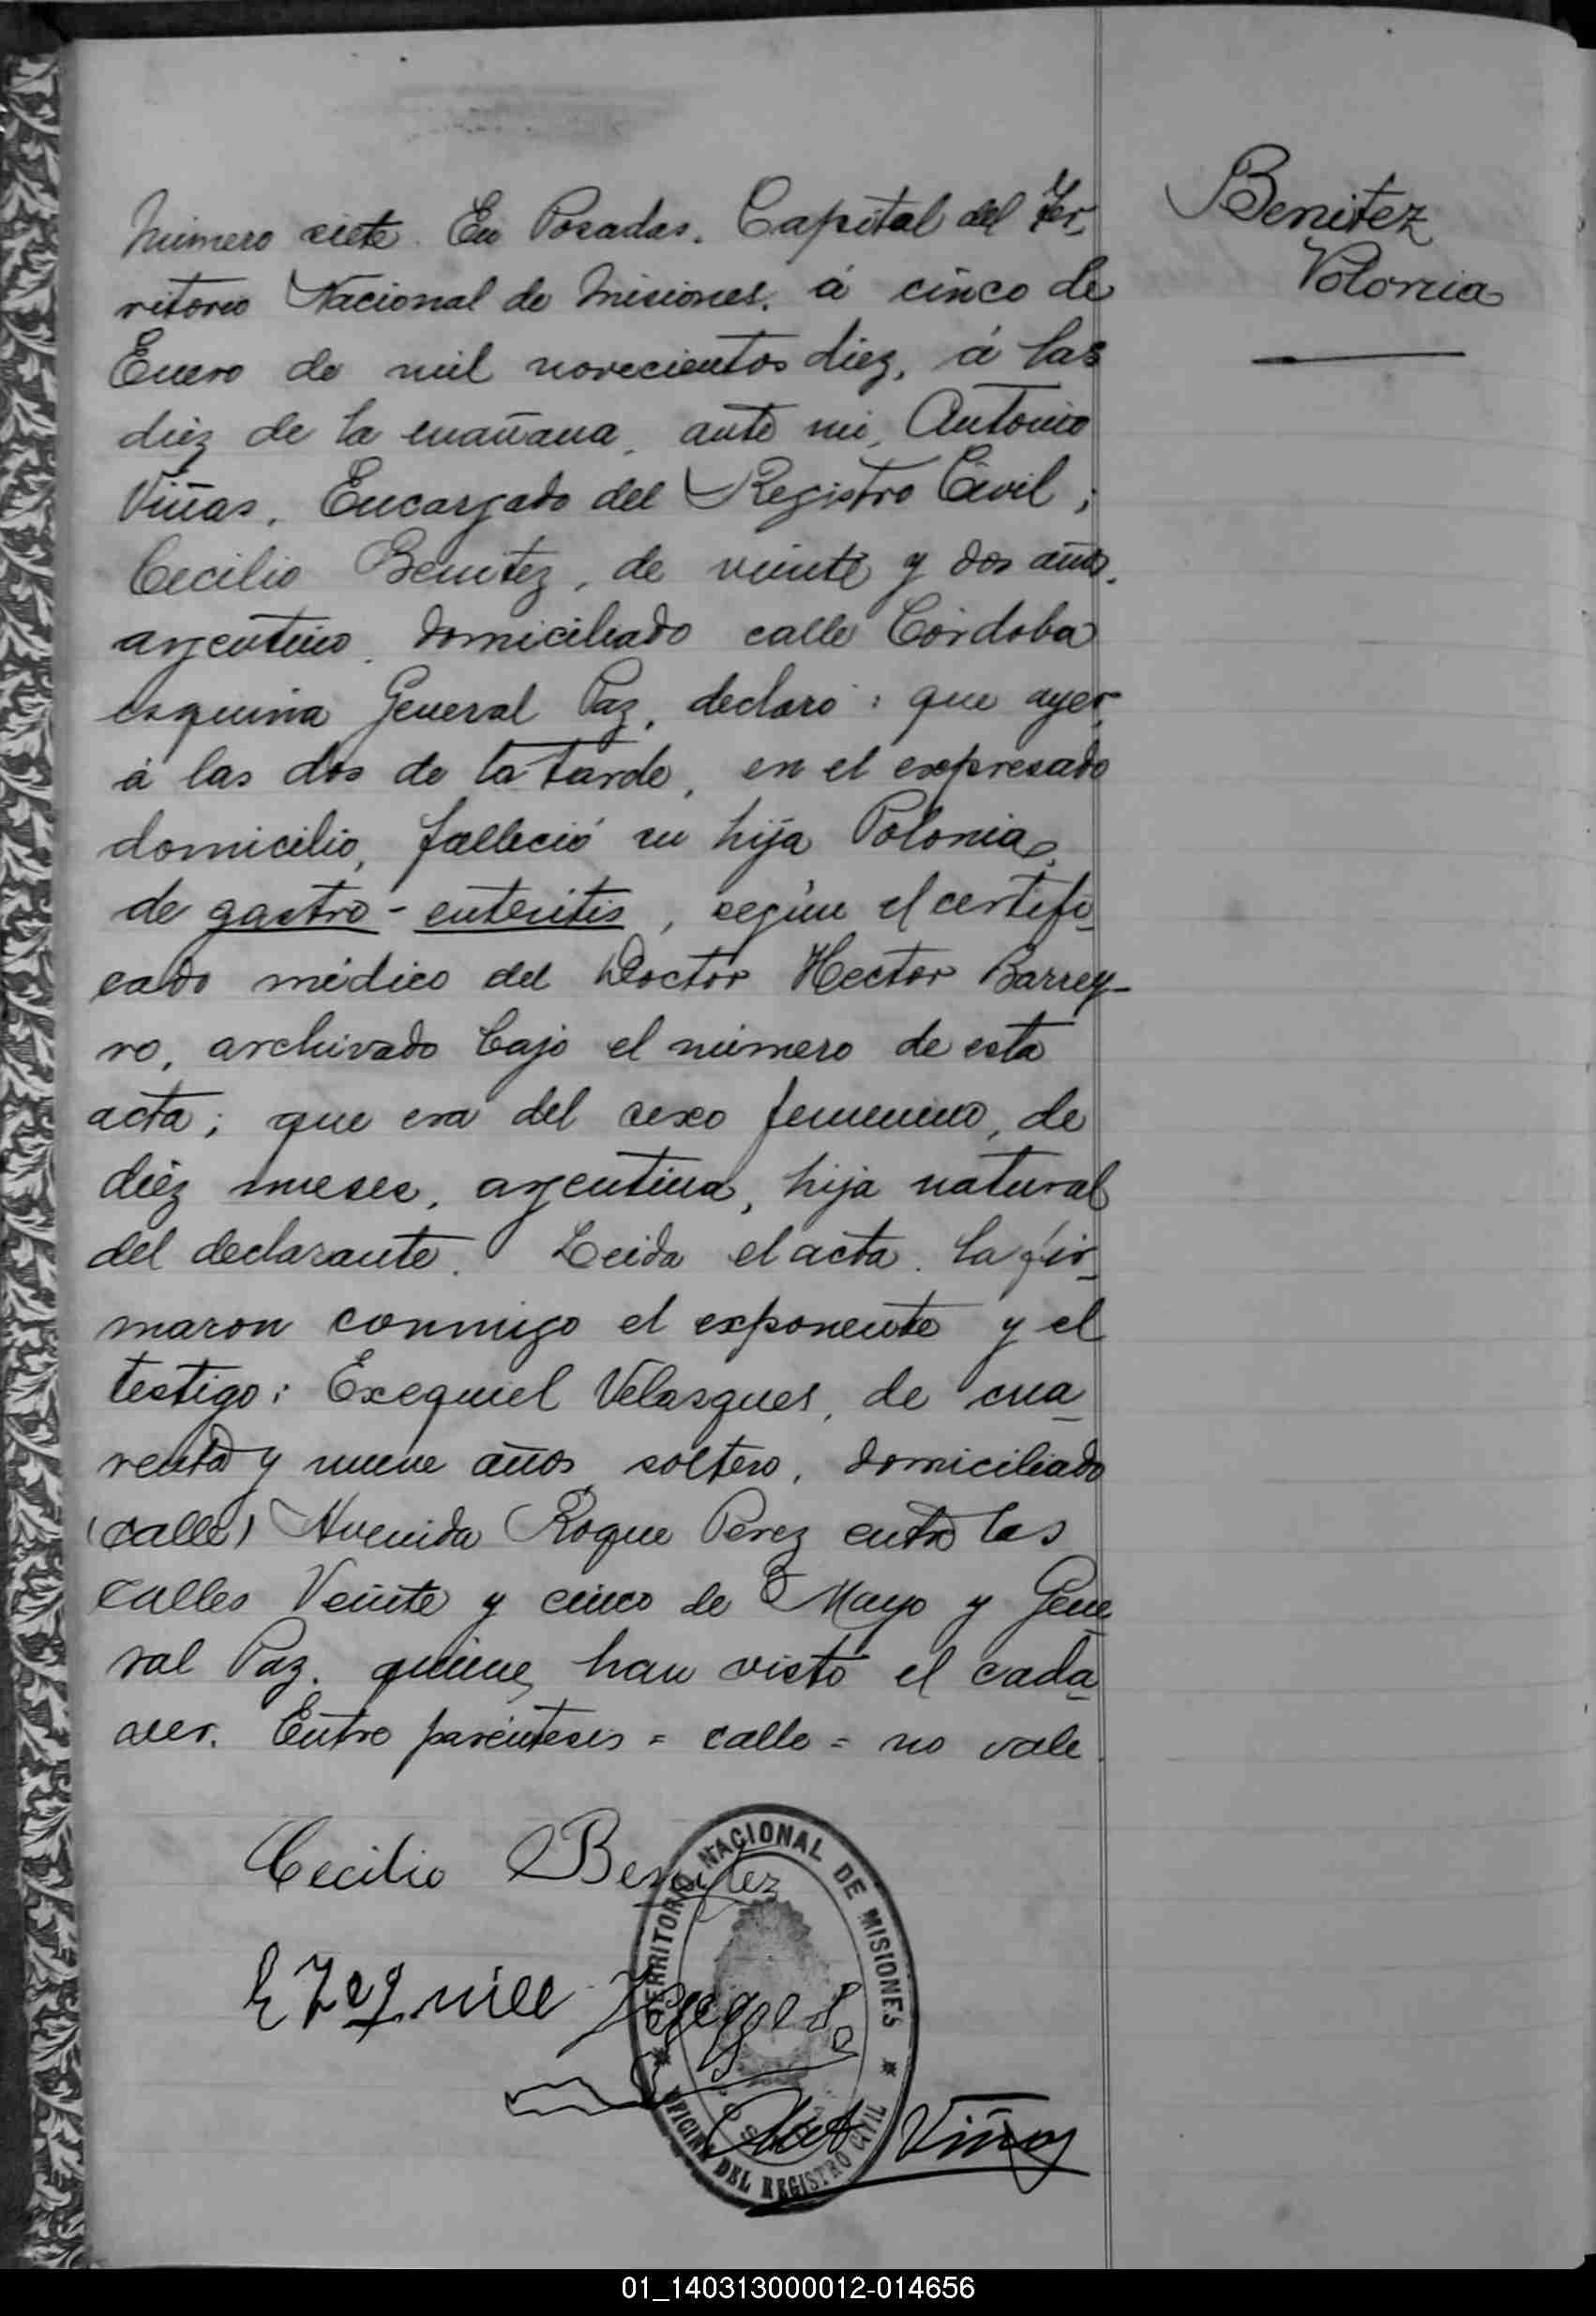 Benitez
Polonia
Número siete. En Posadas, Capital del Ter-
ritorio Nacional de Misiones, á cinco de
Enero de mil novecientos diez, á las
diez de la mañana, ante mi, Antonio
Viñas, Encargado del Registro Civil;
Cecilio Benitez, de veinte y dos años,
argentino, domiciliado calle Córdoba
esquina General Paz, declaró: que ayer,
á las dos de la tarde, en el expresado
domicilio, falleció su hija Polonia,
de gastro-enteritis, según el certifi-
cado médico del Doctor Hector Barrey-
ro, archivado bajo el número de esta
acta; que era del sexo femenino, de
diez meses, argentina, hija natural
del declarante. Leida el acta, la fir-
maron conmigo el exponente y el
testigo: Exequiel Velasques, de cua-
renta y nueve años, soltero, domiciliado
(calle) Avenida Roque Perez entre las
calles Veinte y cinco de Mayo y Gene-
ral Paz, quienes han visto el cada-
ver. Entre paréntesis = calle = no vale.
Cecilio Benitez
Ezequiel
Ant Viñas
TERRITORIO NACIONAL DE MISIONES
OFICINA DEL REGISTRO CIVIL
01_140313000012-014656